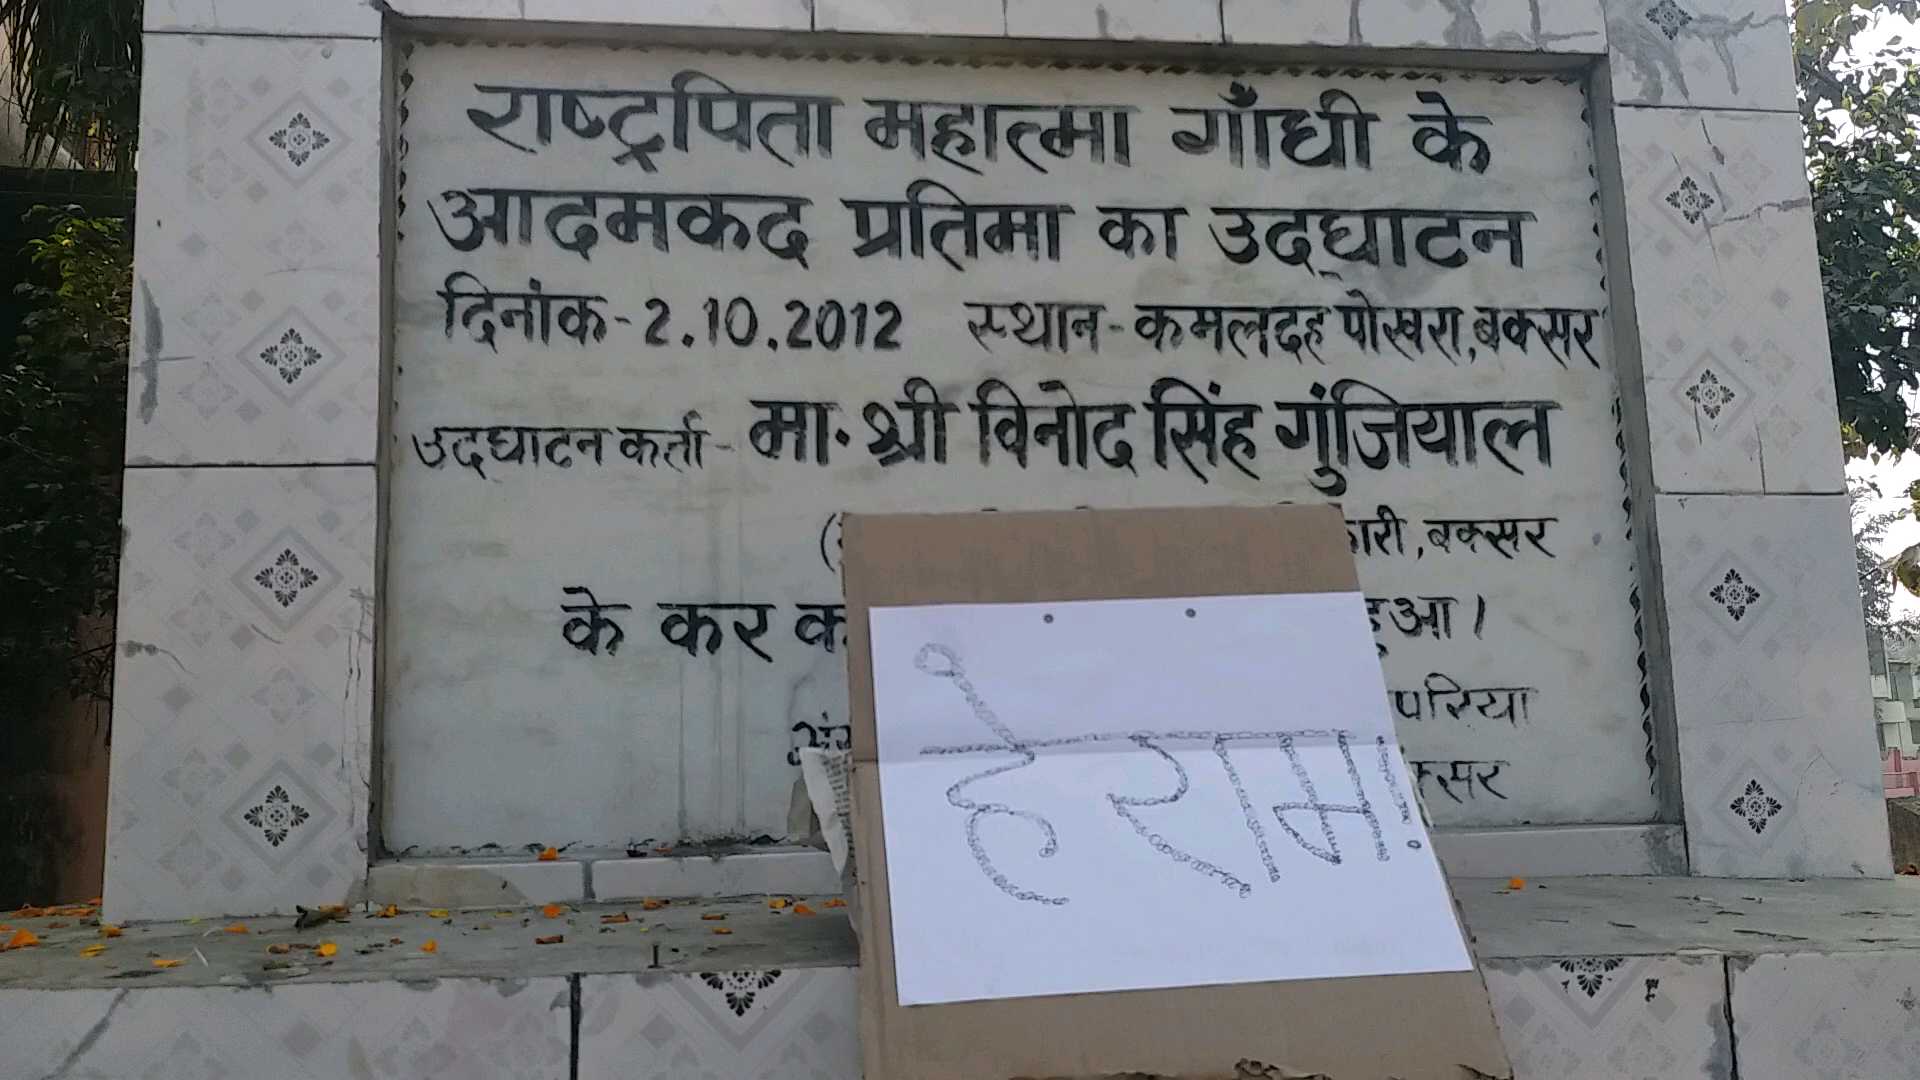 राष्ट्रपिता महात्मा गाँधी के
आदमकद प्रतिमा का उद्घाटन
दिनांक-2.10.2012 स्थान-कमलदह पोखरा,बक्सर
उद्घाटन कर्ता- मा. श्री विनोद सिंह गुंजियाल
,बक्सर
के कर हुआ।
हे राम